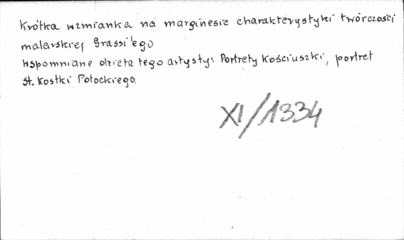 Krótka wzmianka na marginesie charakterystyki twórczości
malarskiej Grassi'ego
Wspomniane dzieła tego artysty: Portrety Kościuszki, portret
St. Kostki Potockiego.
XI/1334